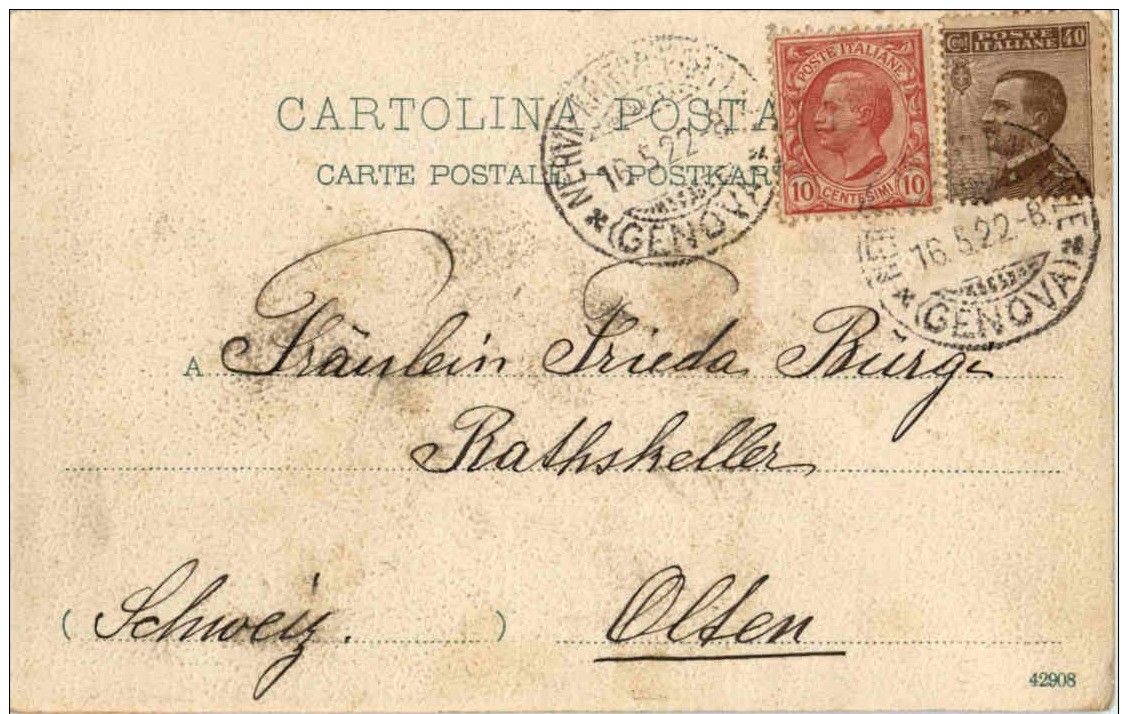 CARTOLINA POSTA
CARTE POSTALE — POSTKAR
POSTE ITALIANE
10 CENTESIMI 10
Cent 40
POSTE
ITALIANE
NERVI
16.5.22-8
(GENOVA)
16.5.22-8
(GENOVA)
A Fräulein Frieda Burgi
Rathskeller
(Schweiz.) Olten
42908